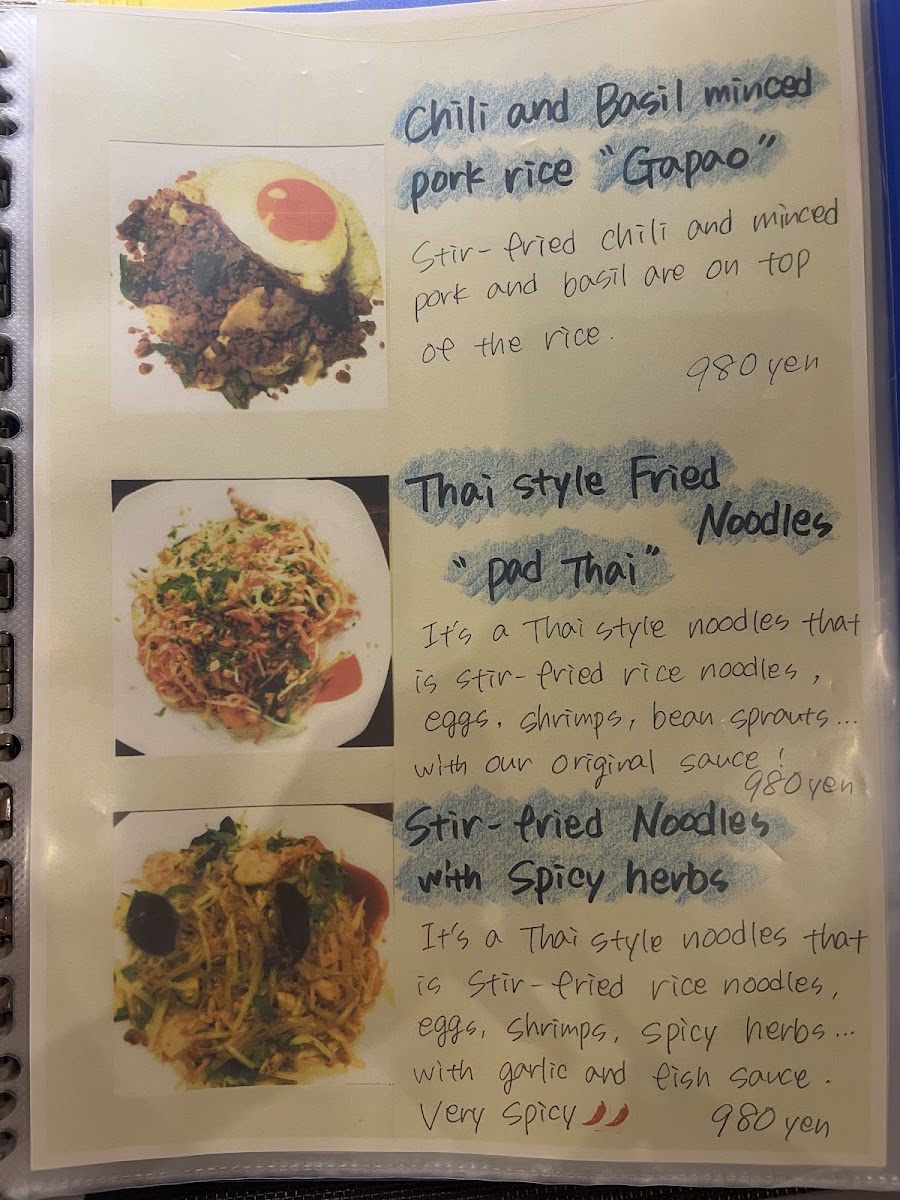 Chili and Basil minced
pork rice "Gapao"
Stir-fried chili and minced
pork and basil are on top
of the rice.
980 yen
Thai style Fried
Noodles
"pad Thai"
It's a Thai style noodles that
is stir-fried rice noodles,
eggs, shrimps, bean sprouts...
with our original sauce!
980 yen
Stir-fried Noodles
with Spicy herbs
It's a Thai style noodles that
is Stir-fried rice noodles,
eggs, shrimps, spicy herbs...
with garlic and fish sauce.
Very spicy
980 yen